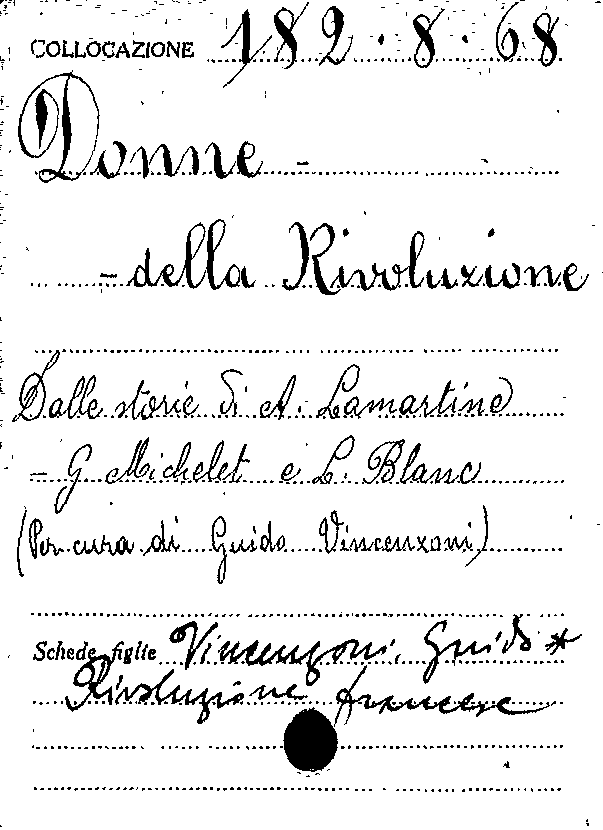 COLLOCAZIONE 182.8.68
Donne -
- della Rivoluzione
Dalle storie di A. Lamartine
- G Michelet e L. Blanc
(Per cura di Guido Vincenzoni)
Schede figlie Vincenzoni, Guido *
Rivoluzione francese